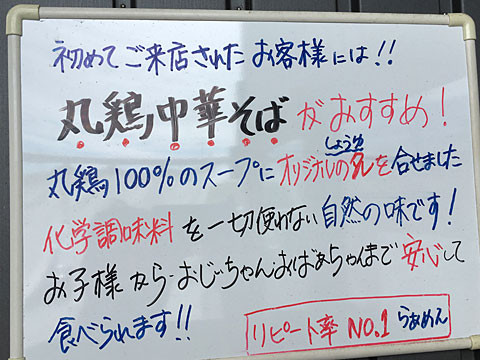 初めてご来店されたお客様には!!
丸鶏中華そばがおすすめ!
丸鶏100%のスープにオリジナルの丸を合せました
しょうゆ
化学調味料を一切使わない自然の味です!
お子様からおじいちゃん・おばぁちゃんまで安心して
食べられます!!
リピート率 NO.1 らぁめん